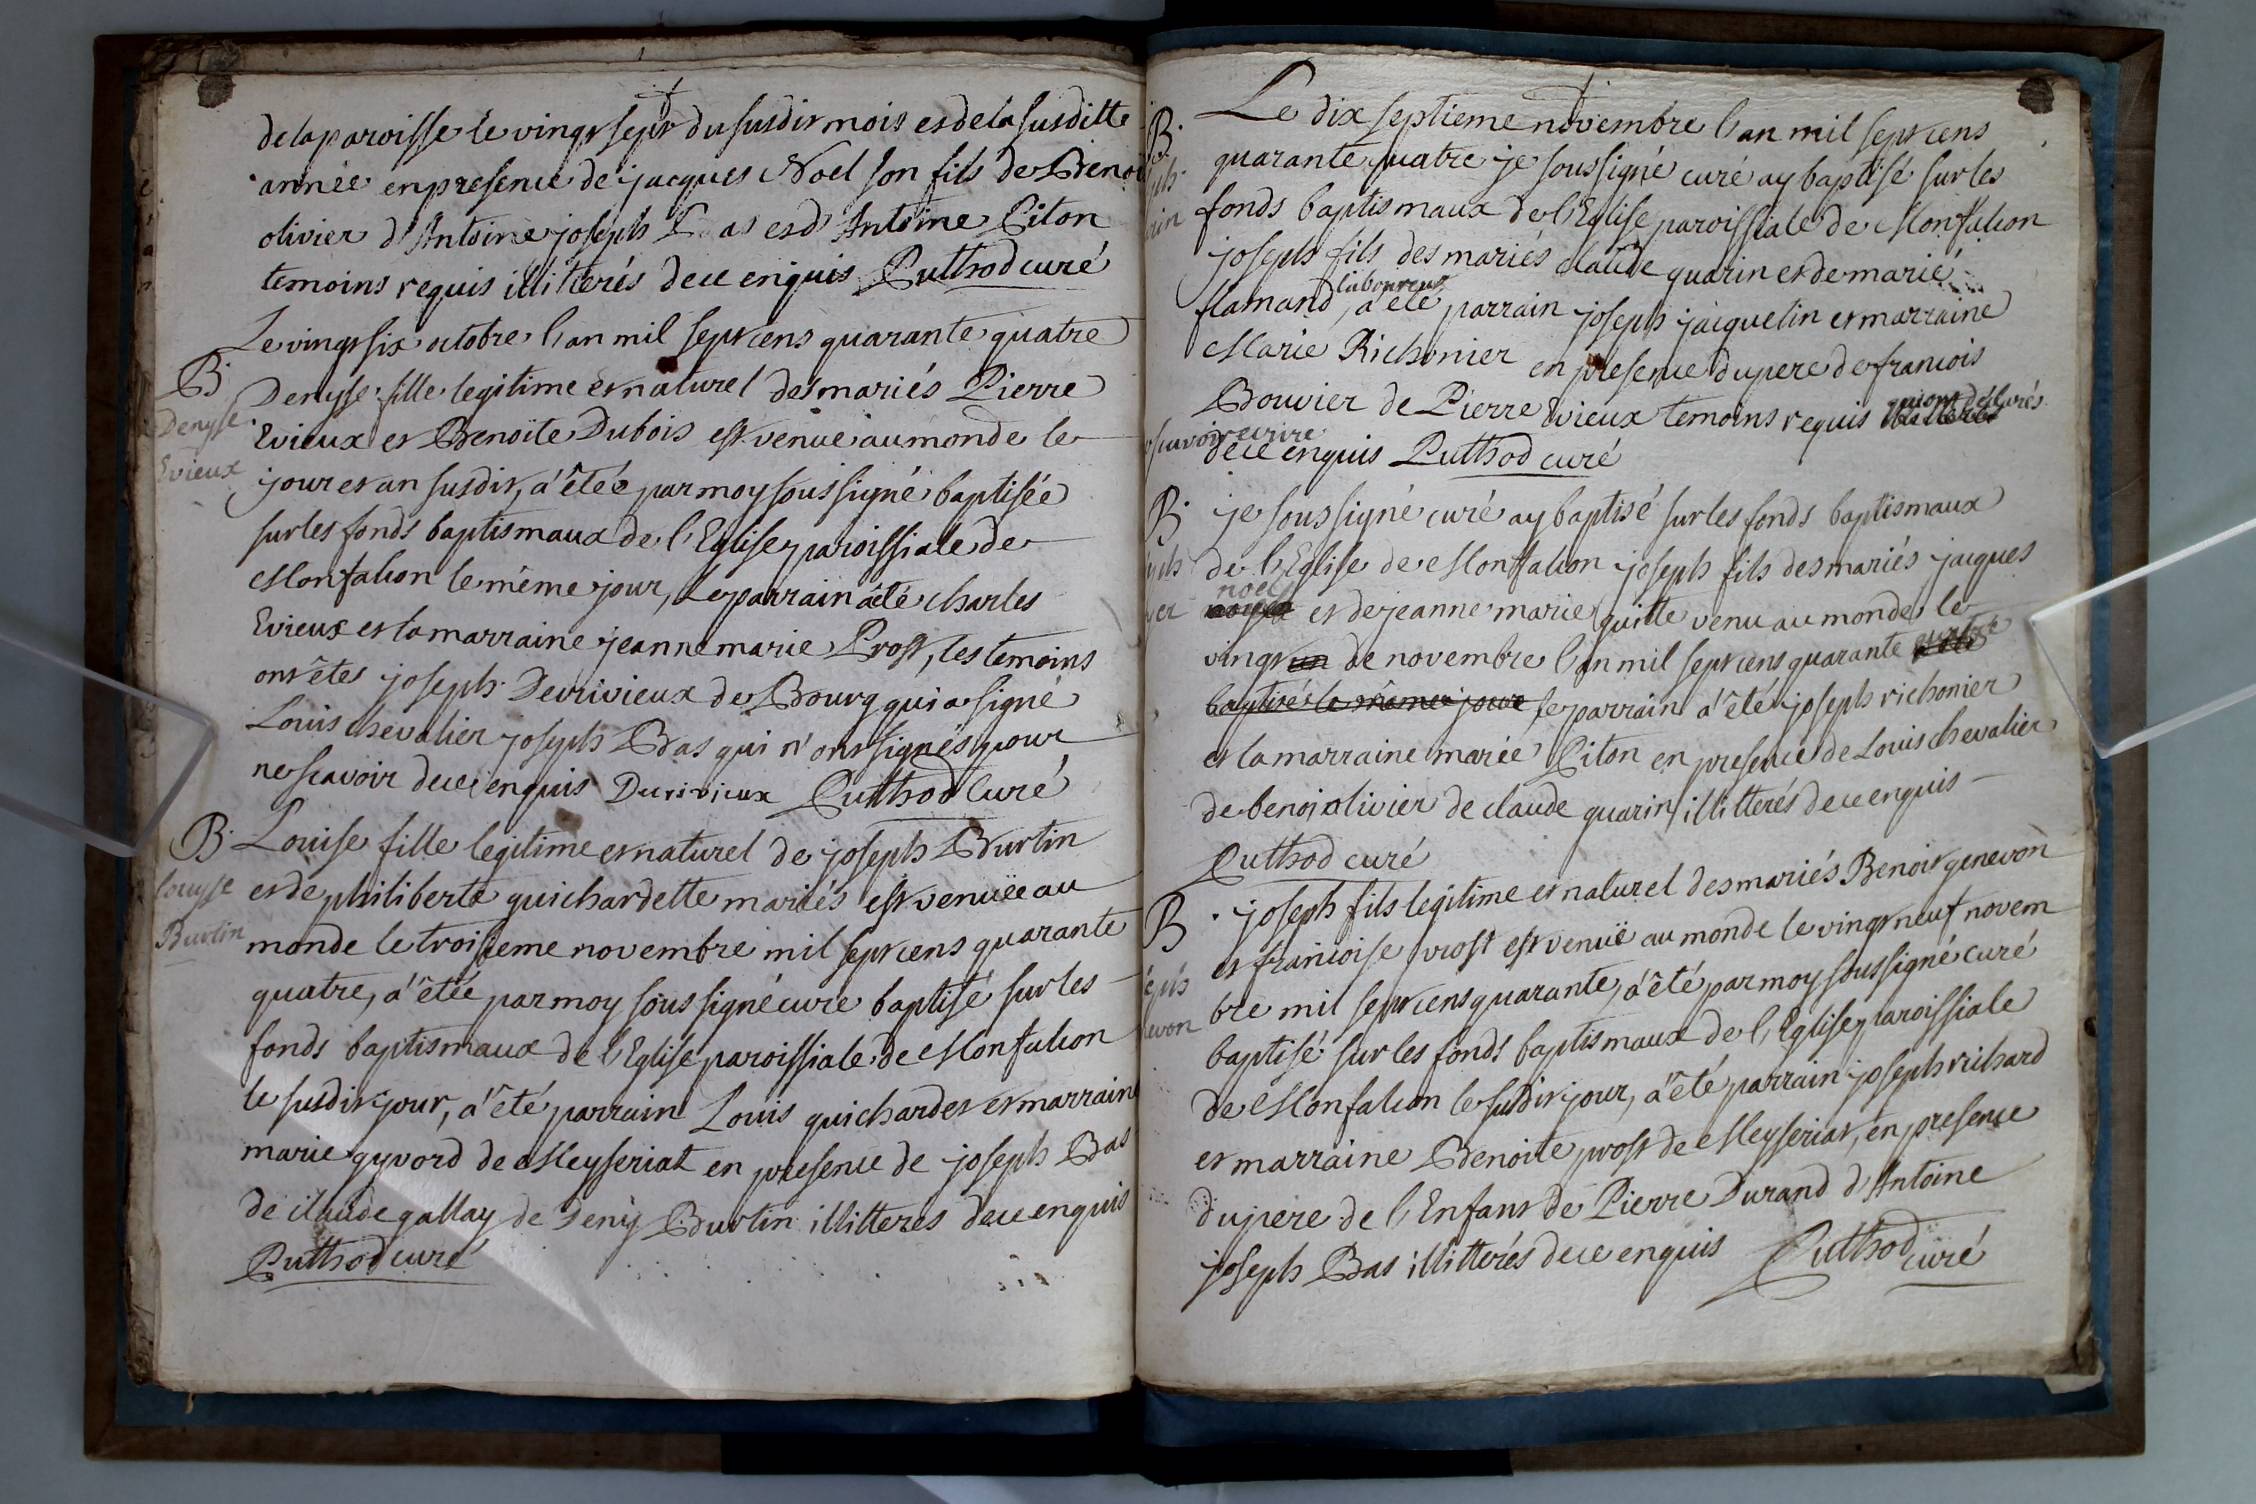 de la paroisse le vingt sept du susdit mois et de la susditte
année en presence de jacques Noel son fils de Benoi
olivier d'Antoine joseph Bas et d'Antoine Piton
temoins requis illitterés de ce enquis Puthod curé
Le vingt six octobre l'an mil sept cens quarante quatre
B.
Denyse
Evieux
Denyse fille legitime et naturel des mariés Pierre
Evieux et Benoite Dubois est venue au monde le
jour et an susdit, a'êtée par moy soussigné baptisée
sur les fonds baptismaux de l'Eglise paroissiale de
Monfalcon le même jour, Le parrain a êté charles
Evieux et la marraine jeanne marie Prost, les temoins
ont êtes joseph Derivieux de Bourg qui a signé
Louis chevalier joseph Bas qui n'ont signés pour
ne scavoir de ce enquis Durivieux Puthod Curé
B.
louyse
Burtin
Louise fille legitime et naturel de joseph Burtin
et de philiberte guichardette mariés est venüe au
monde le troisieme novembre mil sept cens quarante
quatre, a'êtée par moy soussigné curé baptisé sur les
fonds baptismaux de l'Eglise paroissiale de Monfalcon
le susdit jour, a'êté parrain Louis guichardet et marraine
marie gyvord de Meyseriat en presence de joseph Bas
de claude gallay de Deny Burtin illitteres de ce enquis
Puthod curé
B.
Le dix septieme novembre l'an mil sept cens
quarante quatre je soussigné curé ay baptisé sur les
fonds baptismaux de l'Eglise paroissiale de Monfalcon
joseph fils des mariés claude guarin et de marie
laboureur
flamand, a'eté parrain joseph jacquelin et marraine
Marie Richonier en presence du pere de francois
Bouvier de Pierre Evieux temoins requis illitterés
scavoir ecrire
de ce enquis Puthod curé
B.
je soussigné curé ay baptisé sur les fonds baptismaux
de l'Eglise de Monfalcon joseph fils des mariés jacques
noel
et de jeanne marie guitte venu au monde le
vingt un de novembre l'an mil sept cens quarante quatre
baptisé le même jour le parrain a'été joseph richonier
et la marraine marie Piton en presence de Louis chevalier
de benoi olivier de claude guarin illitterés de ce enquis
Puthod curé
B
joseph fils legitime et naturel des mariés Benoit genevon
et francoise prost est venuë au monde le vingt neuf novem
bre mil sept cens quarante, a'êté par moy soussigné curé
baptisé sur les fonds baptismaux de l'Eglise paroissiale
de Monfalcon le susdit jour, a'êté parrain joseph richard
et marraine Benoite prost de Meyseriat, en presence
du pere de l'Enfant de Pierre Durand d'Antoine
joseph Bas illitterés de ce enquis Puthod
curé